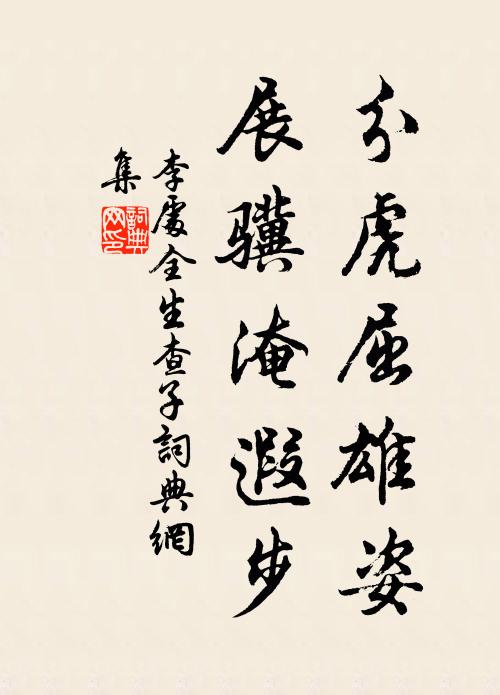 分虎屈雄姿
展骥淹遐步
李處全生查子詞典網
集
詞典網印